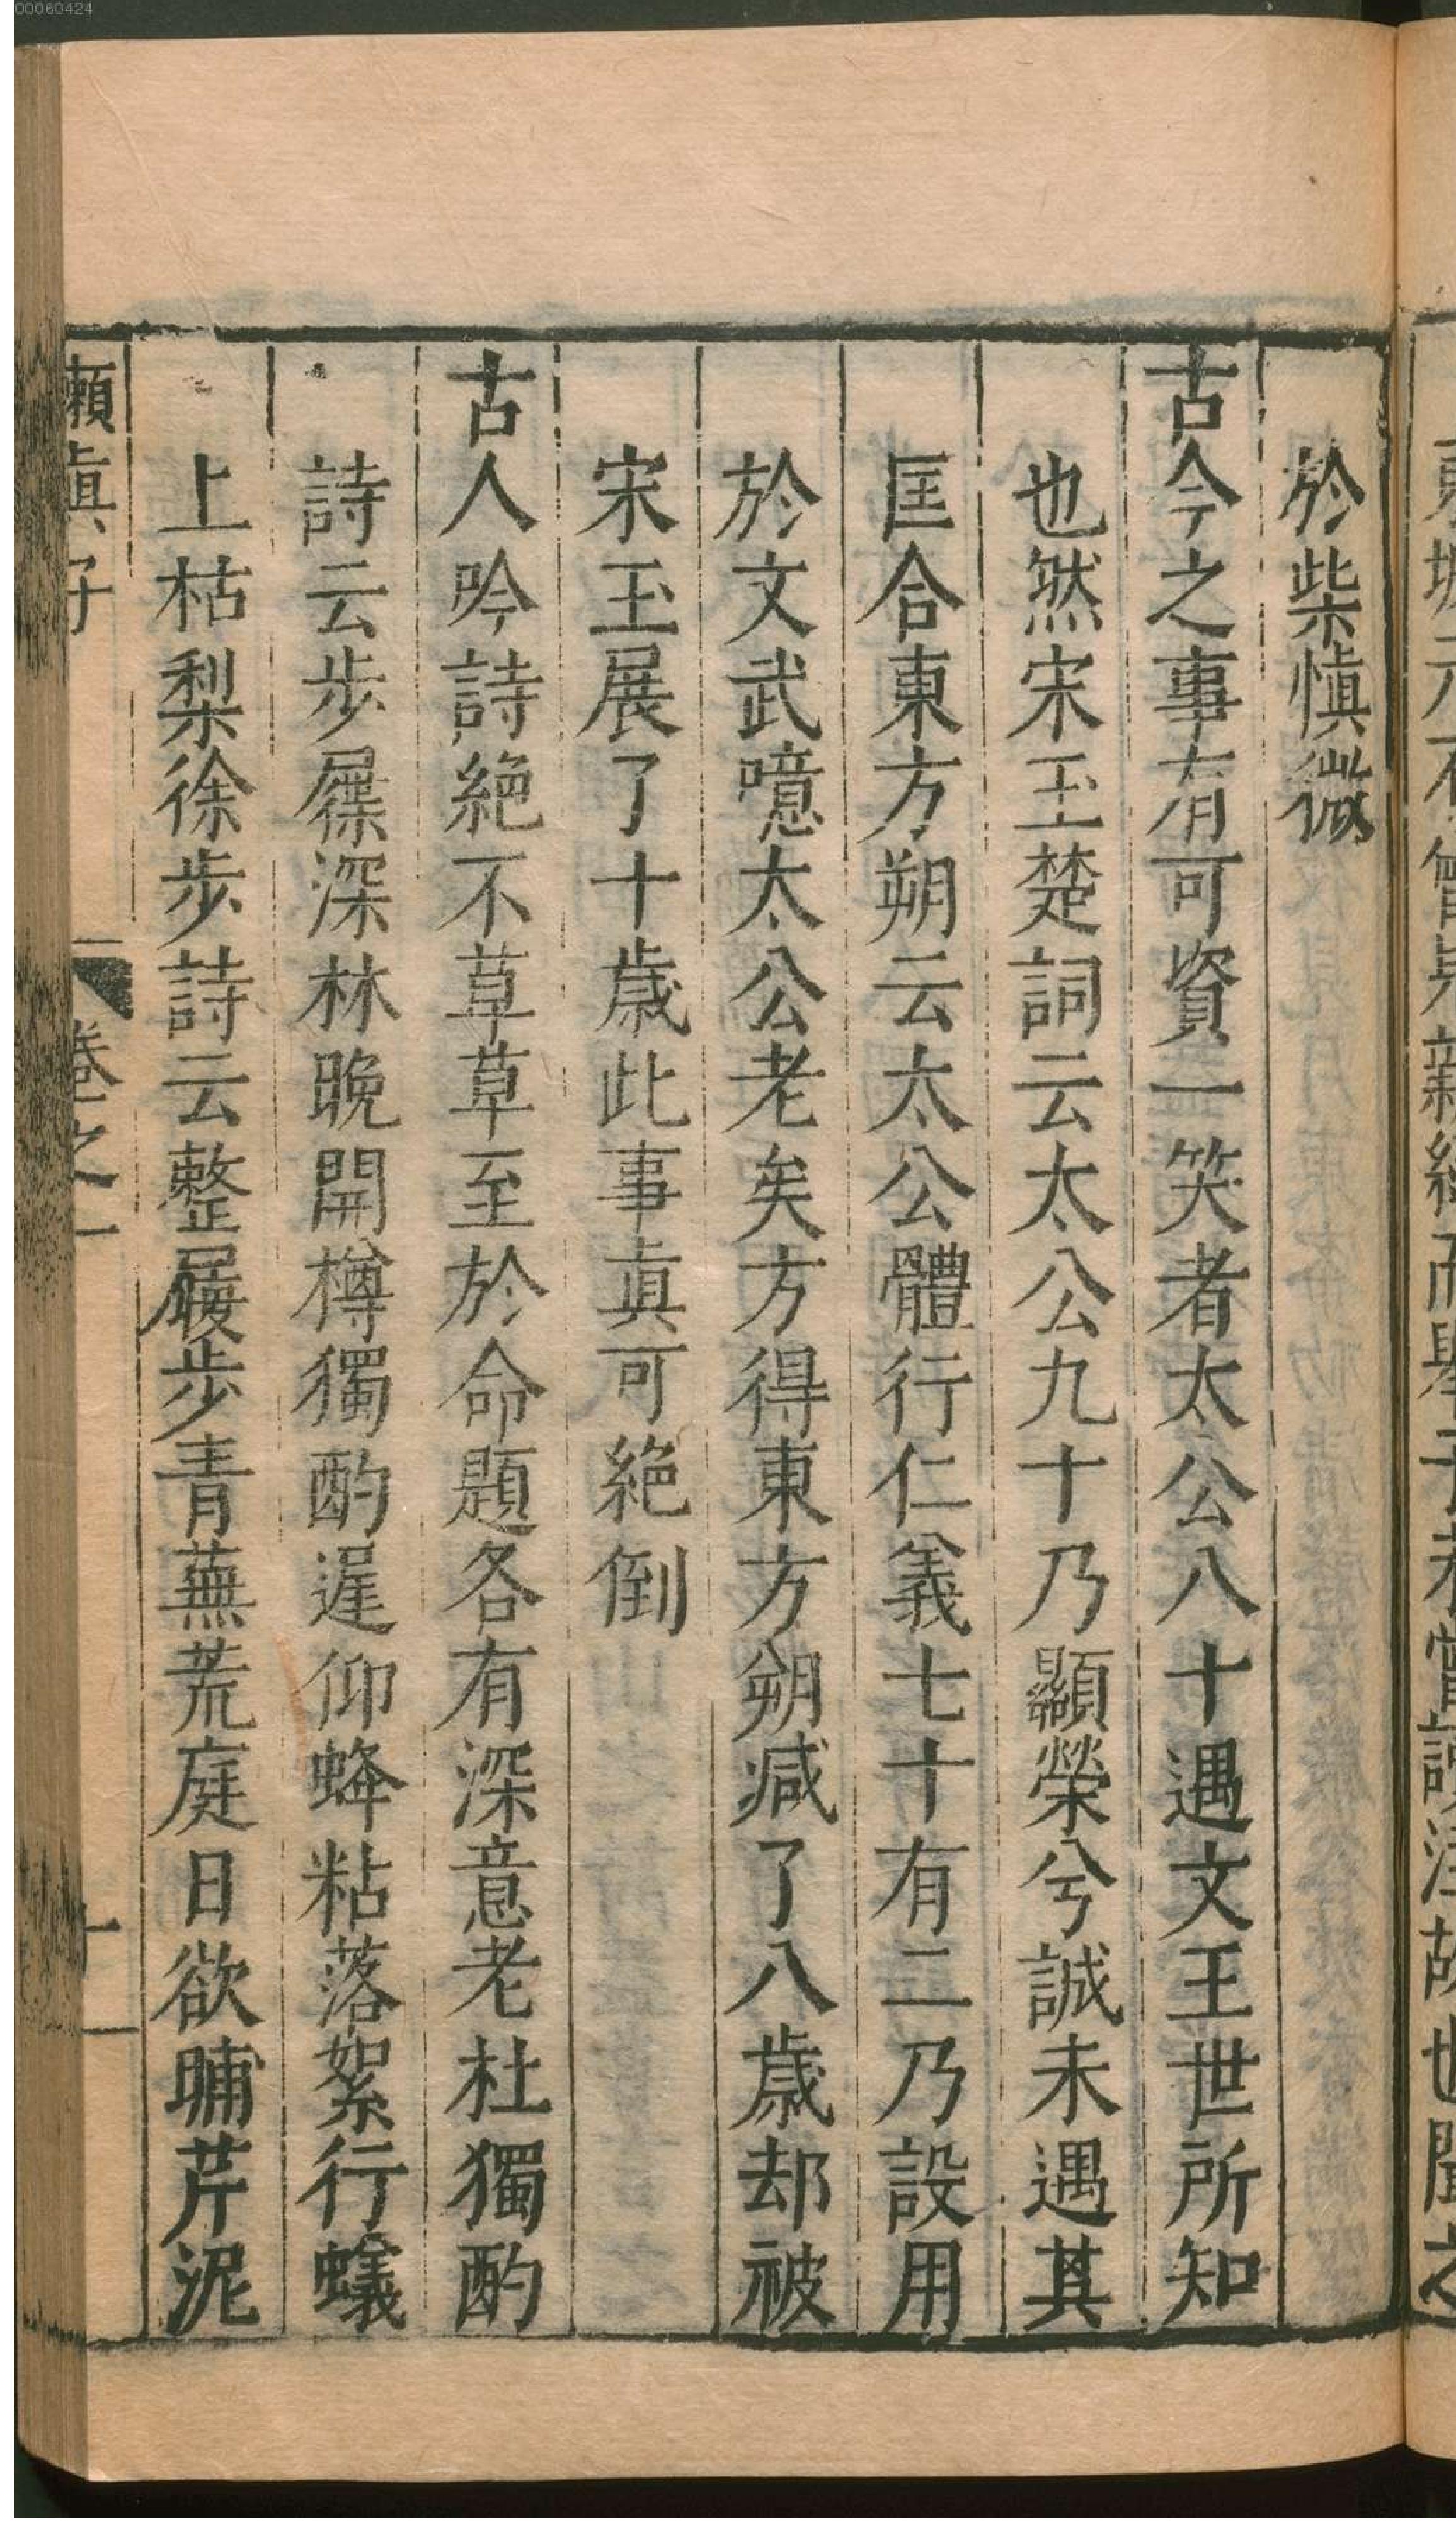 00060424
於柴慎微
古今之事有可資一笑者太公八十遇文王世所知
也然宋玉楚詞云太公九十乃顯榮兮誠未遇其
匡合東方朔云太公體行仁義七十有二乃設用
於文武噫太公老矣方得東方朔减了八歲却被
宋玉展了十歲此事真可絶倒
古人吟詩絶不草草至於命題各有深意老杜獨酌
詩云步屧深林晚開樽獨酌遲仰蜂粘落絮行蟻
上枯梨徐步詩云整履步青蕪荒庭日欲晡芹泥
懶真子
卷之一
十一